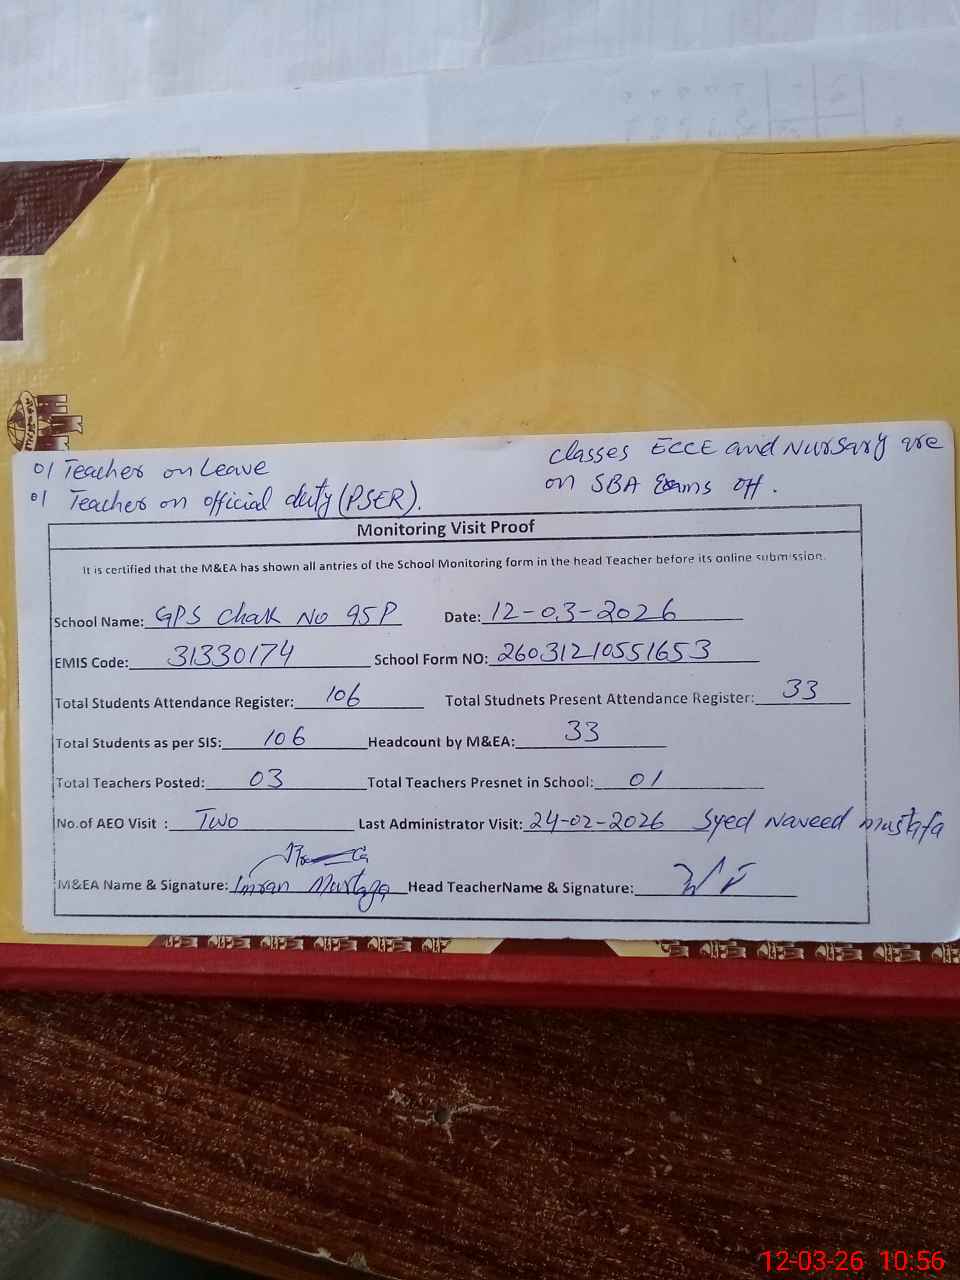 01 Teacher on Leave
01 Teacher on official duty (PSER).
classes ECCE and Nursary are
on SBA Exams off.
Monitoring Visit Proof
It is certified that the M&EA has shown all antries of the School Monitoring form in the head Teacher before its online submission.
School Name: GPS Chak No 95P Date: 12-03-2026
EMIS Code: 31330174 School Form NO: 26031210551653
Total Students Attendance Register: 106 Total Studnets Present Attendance Register: 33
Total Students as per SIS: 106 Headcount by M&EA: 33
Total Teachers Posted: 03 Total Teachers Presnet in School: 01
No.of AEO Visit : Two Last Administrator Visit: 24-02-2026 Syed Naveed Mustafa
M&EA Name & Signature: Imran Murtaza Head TeacherName & Signature:
12-03-26 10:56